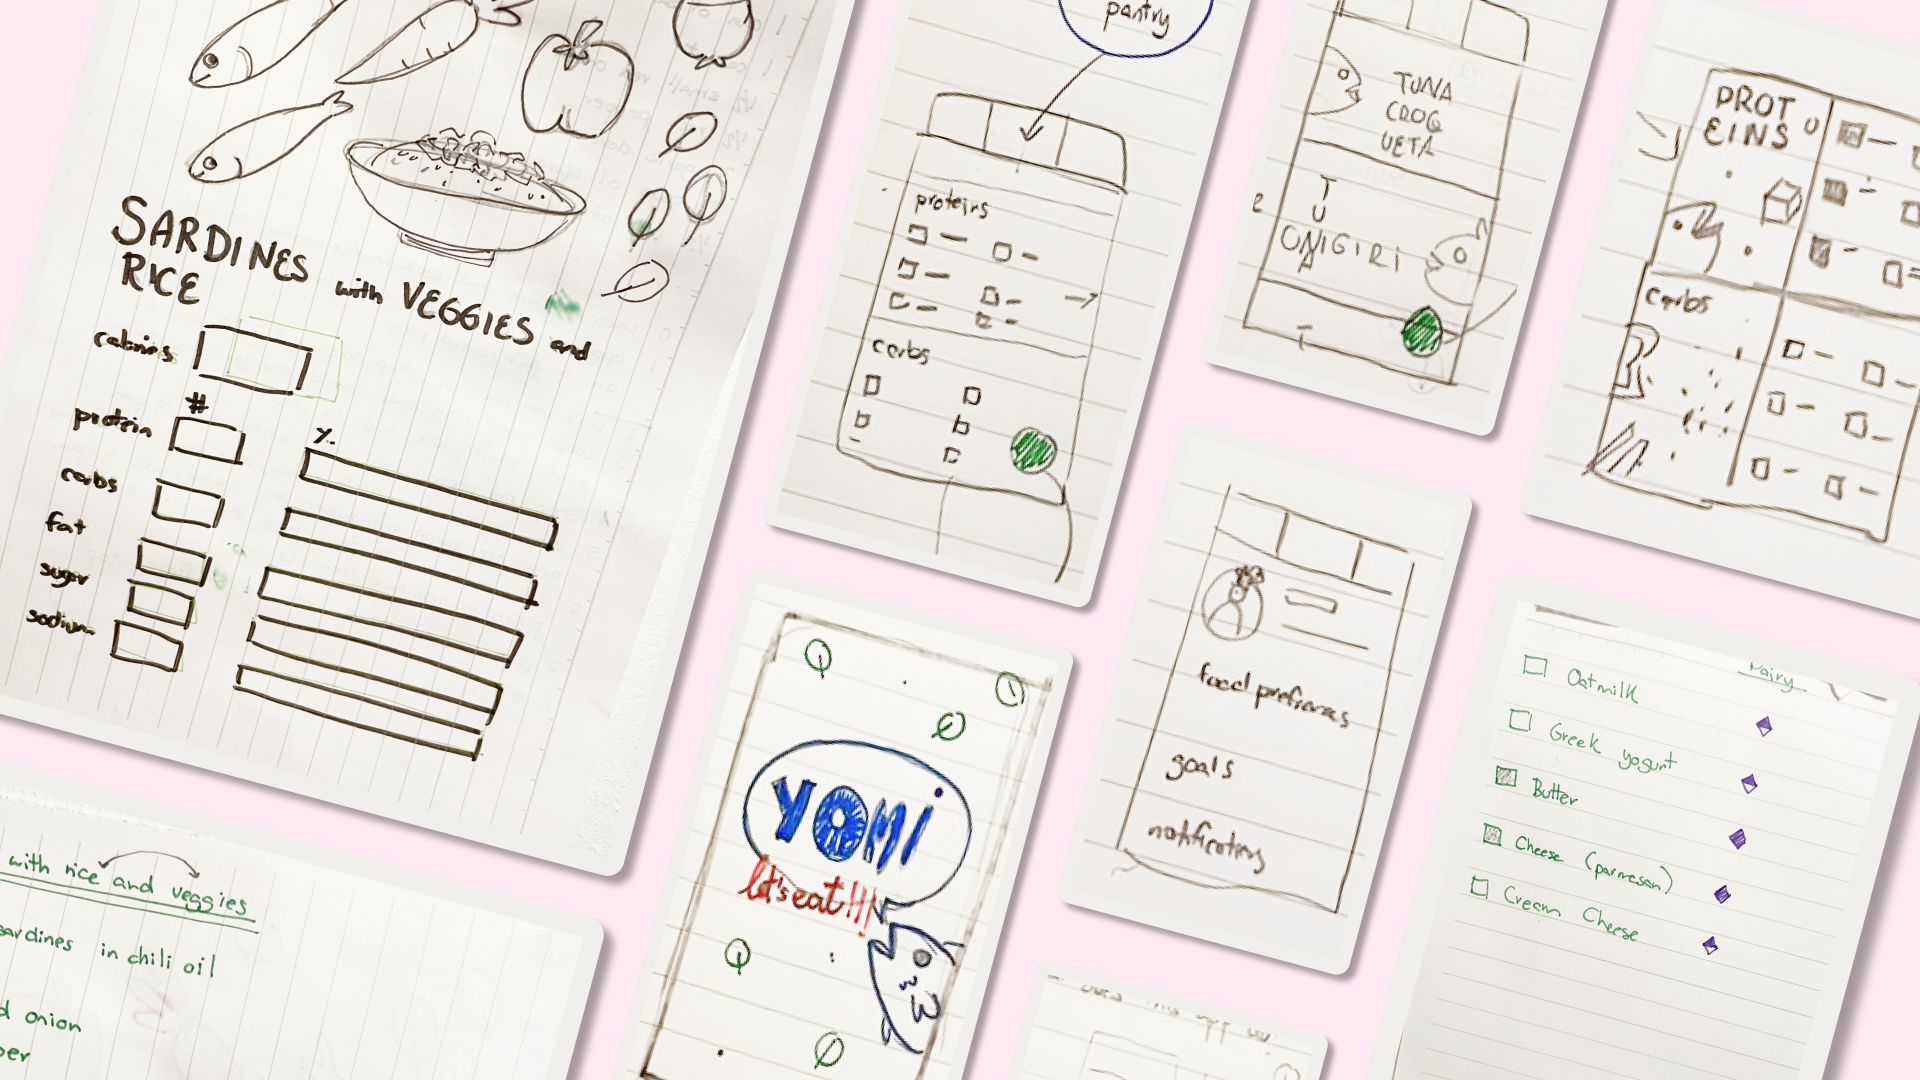 SARDINES with VEGGIES and
RICE
calories
#
protein
%
carbs
fat
sugar
sodium
with rice and veggies
sardines in chili oil
onion
pantry
proteins
carbs
TUNA
CROQ
UETA
T
U
ONIGIRI
PROT
EINS
carbs
YOMi
let's eat!!!
food prefrances
goals
notifications
Dairy
Oatmilk
Greek yogurt
Butter
Cheese (parmesan)
Cream Cheese